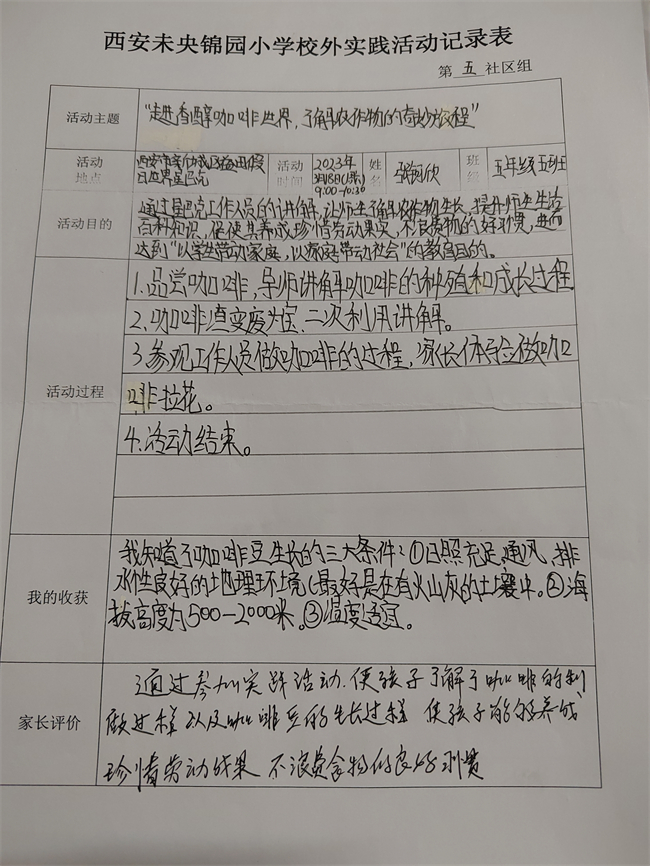 西安未央锦园小学校外实践活动记录表
第 五 社区组
活动主题
"走进香醇咖啡世界，了解农作物的奇妙旅程"
活动
地点
日世界星巴克
活动
时间
2023年
9:00-10:30
姓
名
班
级
五年级五班
活动目的
通过星巴克工作人员的讲解，让师生了解农作物生长，提升师生生活
百科知识，促使其养成珍惜劳动果实，不浪费食物的好习惯，进而
达到"以学生带动家庭，以家庭带动社会"的教育目的。
活动过程
1.品尝咖啡，导师讲解咖啡的种殖和成长过程
2.咖啡渣变废为宝，二次利用讲解。
3.参观工作人员做咖啡的过程，家长体验做咖
啡拉花。
4.活动结束。
我的收获
我知道了咖啡豆生长的三大条件：①日照充足，通风，排
水性良好的地理环境（最好是在有火山灰的土壤中。②海
拔高度为500-2000米。③温度适宜。
家长评价
通过参加实践活动，使孩子了解了咖啡的制
做过程以及咖啡豆的生长过程 使孩子能够养成
珍惜劳动成果 不浪费食物的良好习惯